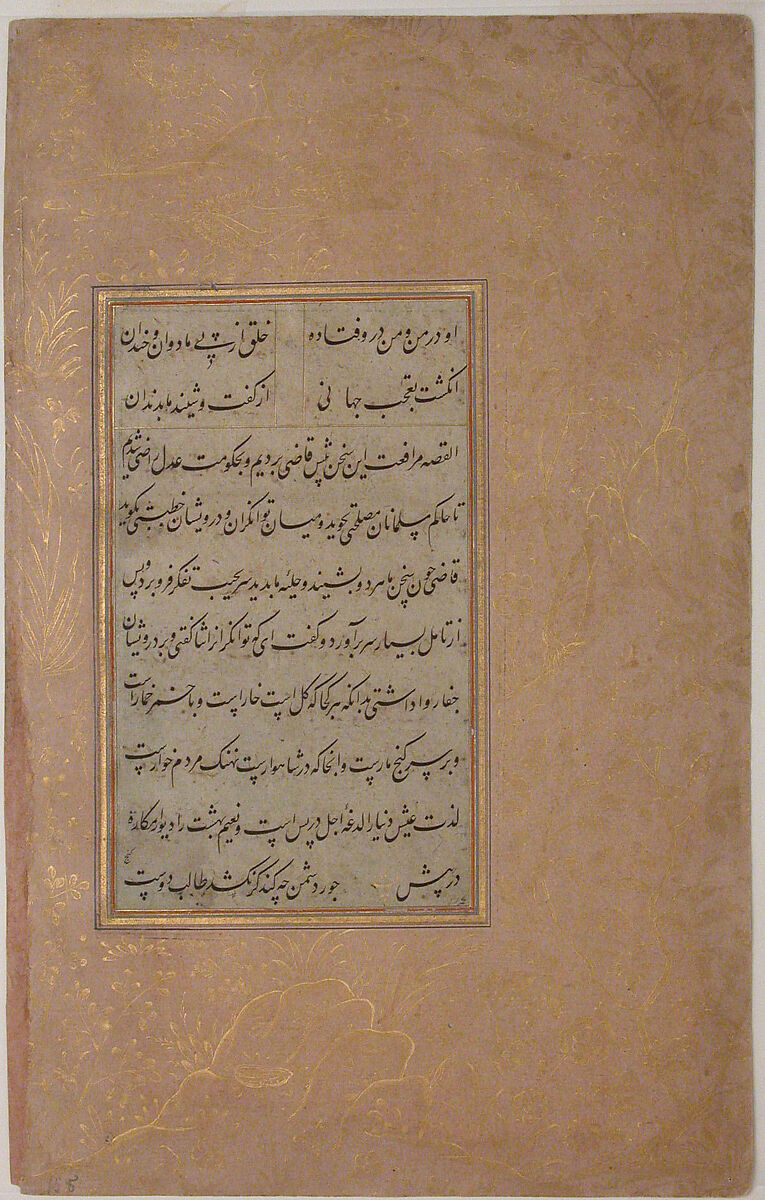 او در من و من درو فتاده خلق از پی ما دوان و خندان
انگشت تعجب جهانی از کفت و شنید ما بدندان
القصه مرافعت این سخن پیش قاضی بردیم و بحکومت عدل راضی شدیم
تا حاکم مسلمانان مصلحتی بجوید و میان توانگران و درویشان خطبتی بگوید
قاضی چون سخن ما هر دو بشنید و حلیه ما بدید سر بجیب تفکر فرو برد و پس
از تامل بسیار سر برآورد و گفت ای که توانگرانرا ثنا گفتی و بر درویشان
جفا روا داشتی بدانکه هر کجا که گل است خار است و با خمر خمار است
و بر سر گنج مارست و انجا که در شاهوارست نهنگ مردم خوارست
لذت عیش دنیا را لدغه اجل در پس است و نعیم بهشت را دیوار مکاره
در پیش جور دشمن چه کند گر نکشد طالب دوست
گنج